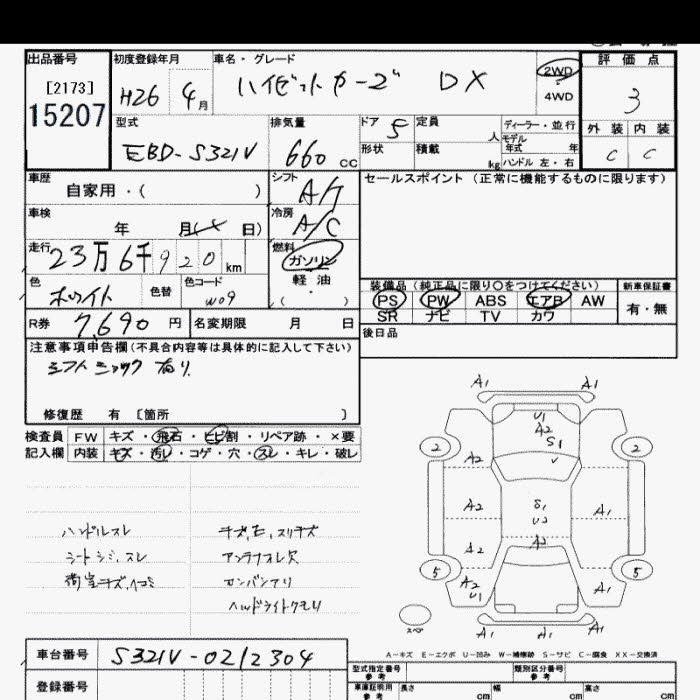 出品番号 初度登録年月 車名・グレード 評価点
[2173] H26 4月 ハイゼットカーゴ DX 2WD 4WD 3
15207
型式 排気量 ドア 5 定員 人 ディーラー・並行
EBD-S321V 660cc 形状 積載 kg モデル年式 年 ハンドル 左・右
外装 内装
C C
車歴 シフト セールスポイント (正常に機能するものに限ります)
自家用・( ) A/T
車検 冷房
年 月( 日) A/C
走行 燃料
23万6千920km ガソリン
軽油
色 色替 色コード ・( )
ホワイト W09
装備品(純正品に限り○をつけてください) 新車保証書
PS PW ABS エアB AW 有・無
SR ナビ TV カワ
R券 7,690円 名変期限 月 日
後日品
注意事項申告欄(不具合内容等は具体的に記入して下さい)
シフトショック有り
修復歴 有 〔箇所 〕
検査員 FW キズ・飛石・ヒビ割・リペア跡・×要
記入欄 内装 キズ・汚レ・コゲ・穴・スレ・キレ・破レ
A1 A1
U1
A2
S1
2 2
A2
A2 S1 A1
U2
A2 A2
5 5
A2 A1
U1
スペア
A1 A1 A1
ハンドルスレ
シートシミ、スレ
荷室キズ、凹コミ
キズ、凹、スリキズ
アンテナオレ欠
カンバンアリ
ヘッドライトクモリ
A-キズ E-エクボ U-凹み W-補修跡 S-サビ C-腐食 XX-交換済
車台番号 S321V-0212304
登録番号
型式指定番号 参考 類別区分番号 参考
車庫証明用 参考 長さ cm 幅 cm 高さ cm